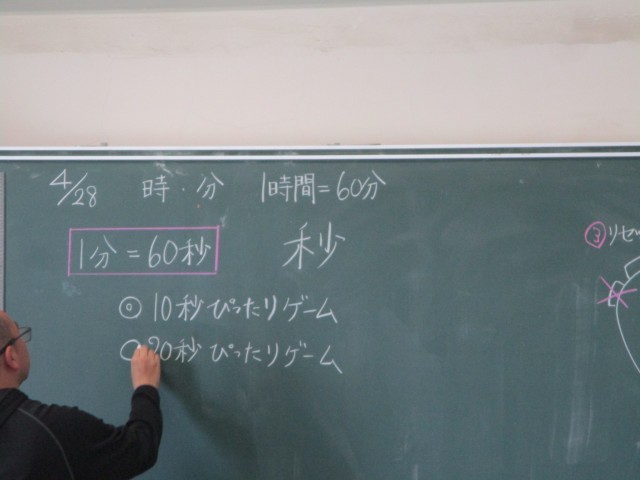 4/28 時・分 1時間=60分
1分=60秒 秒
◎10秒ぴったりゲーム
○20秒ぴったりゲーム
③リセッ